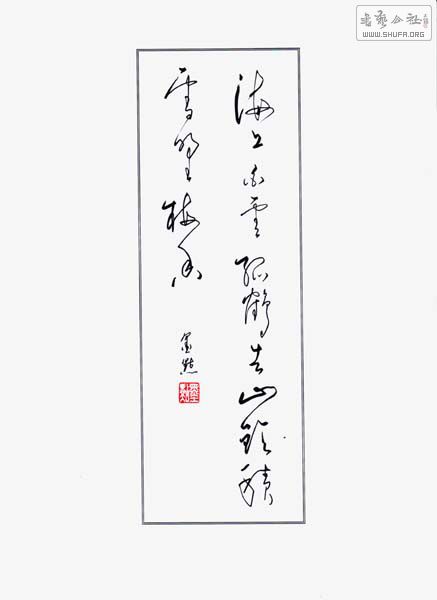 書藝公社
WWW.SHUFA.ORG
海上白雲孤鶴去山積
雪野梅香
墨點